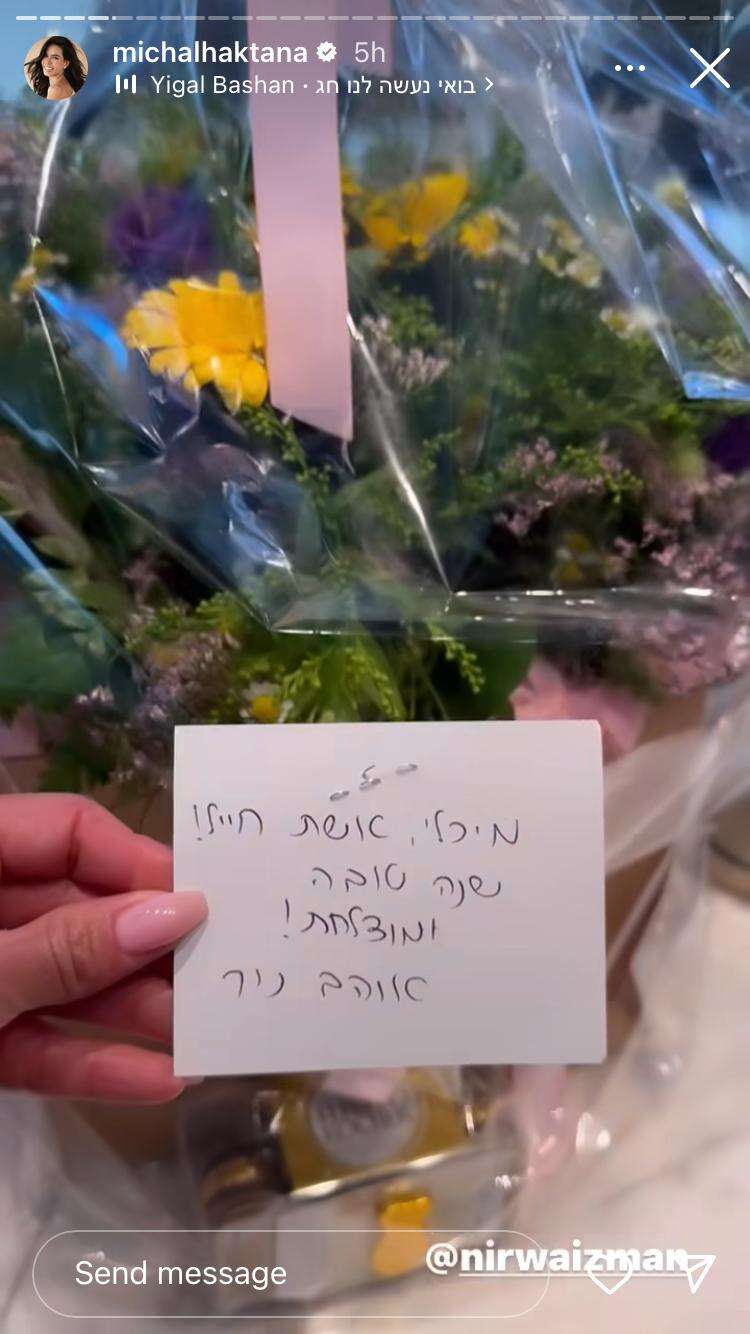 michalhaktana 5h
Yigal Bashan · בואי נעשה לנו חג
מיכלי, אושת חייל!
שנה טובה
ומוצלחת!
אוהב ניר
@nirwaizman
Send message